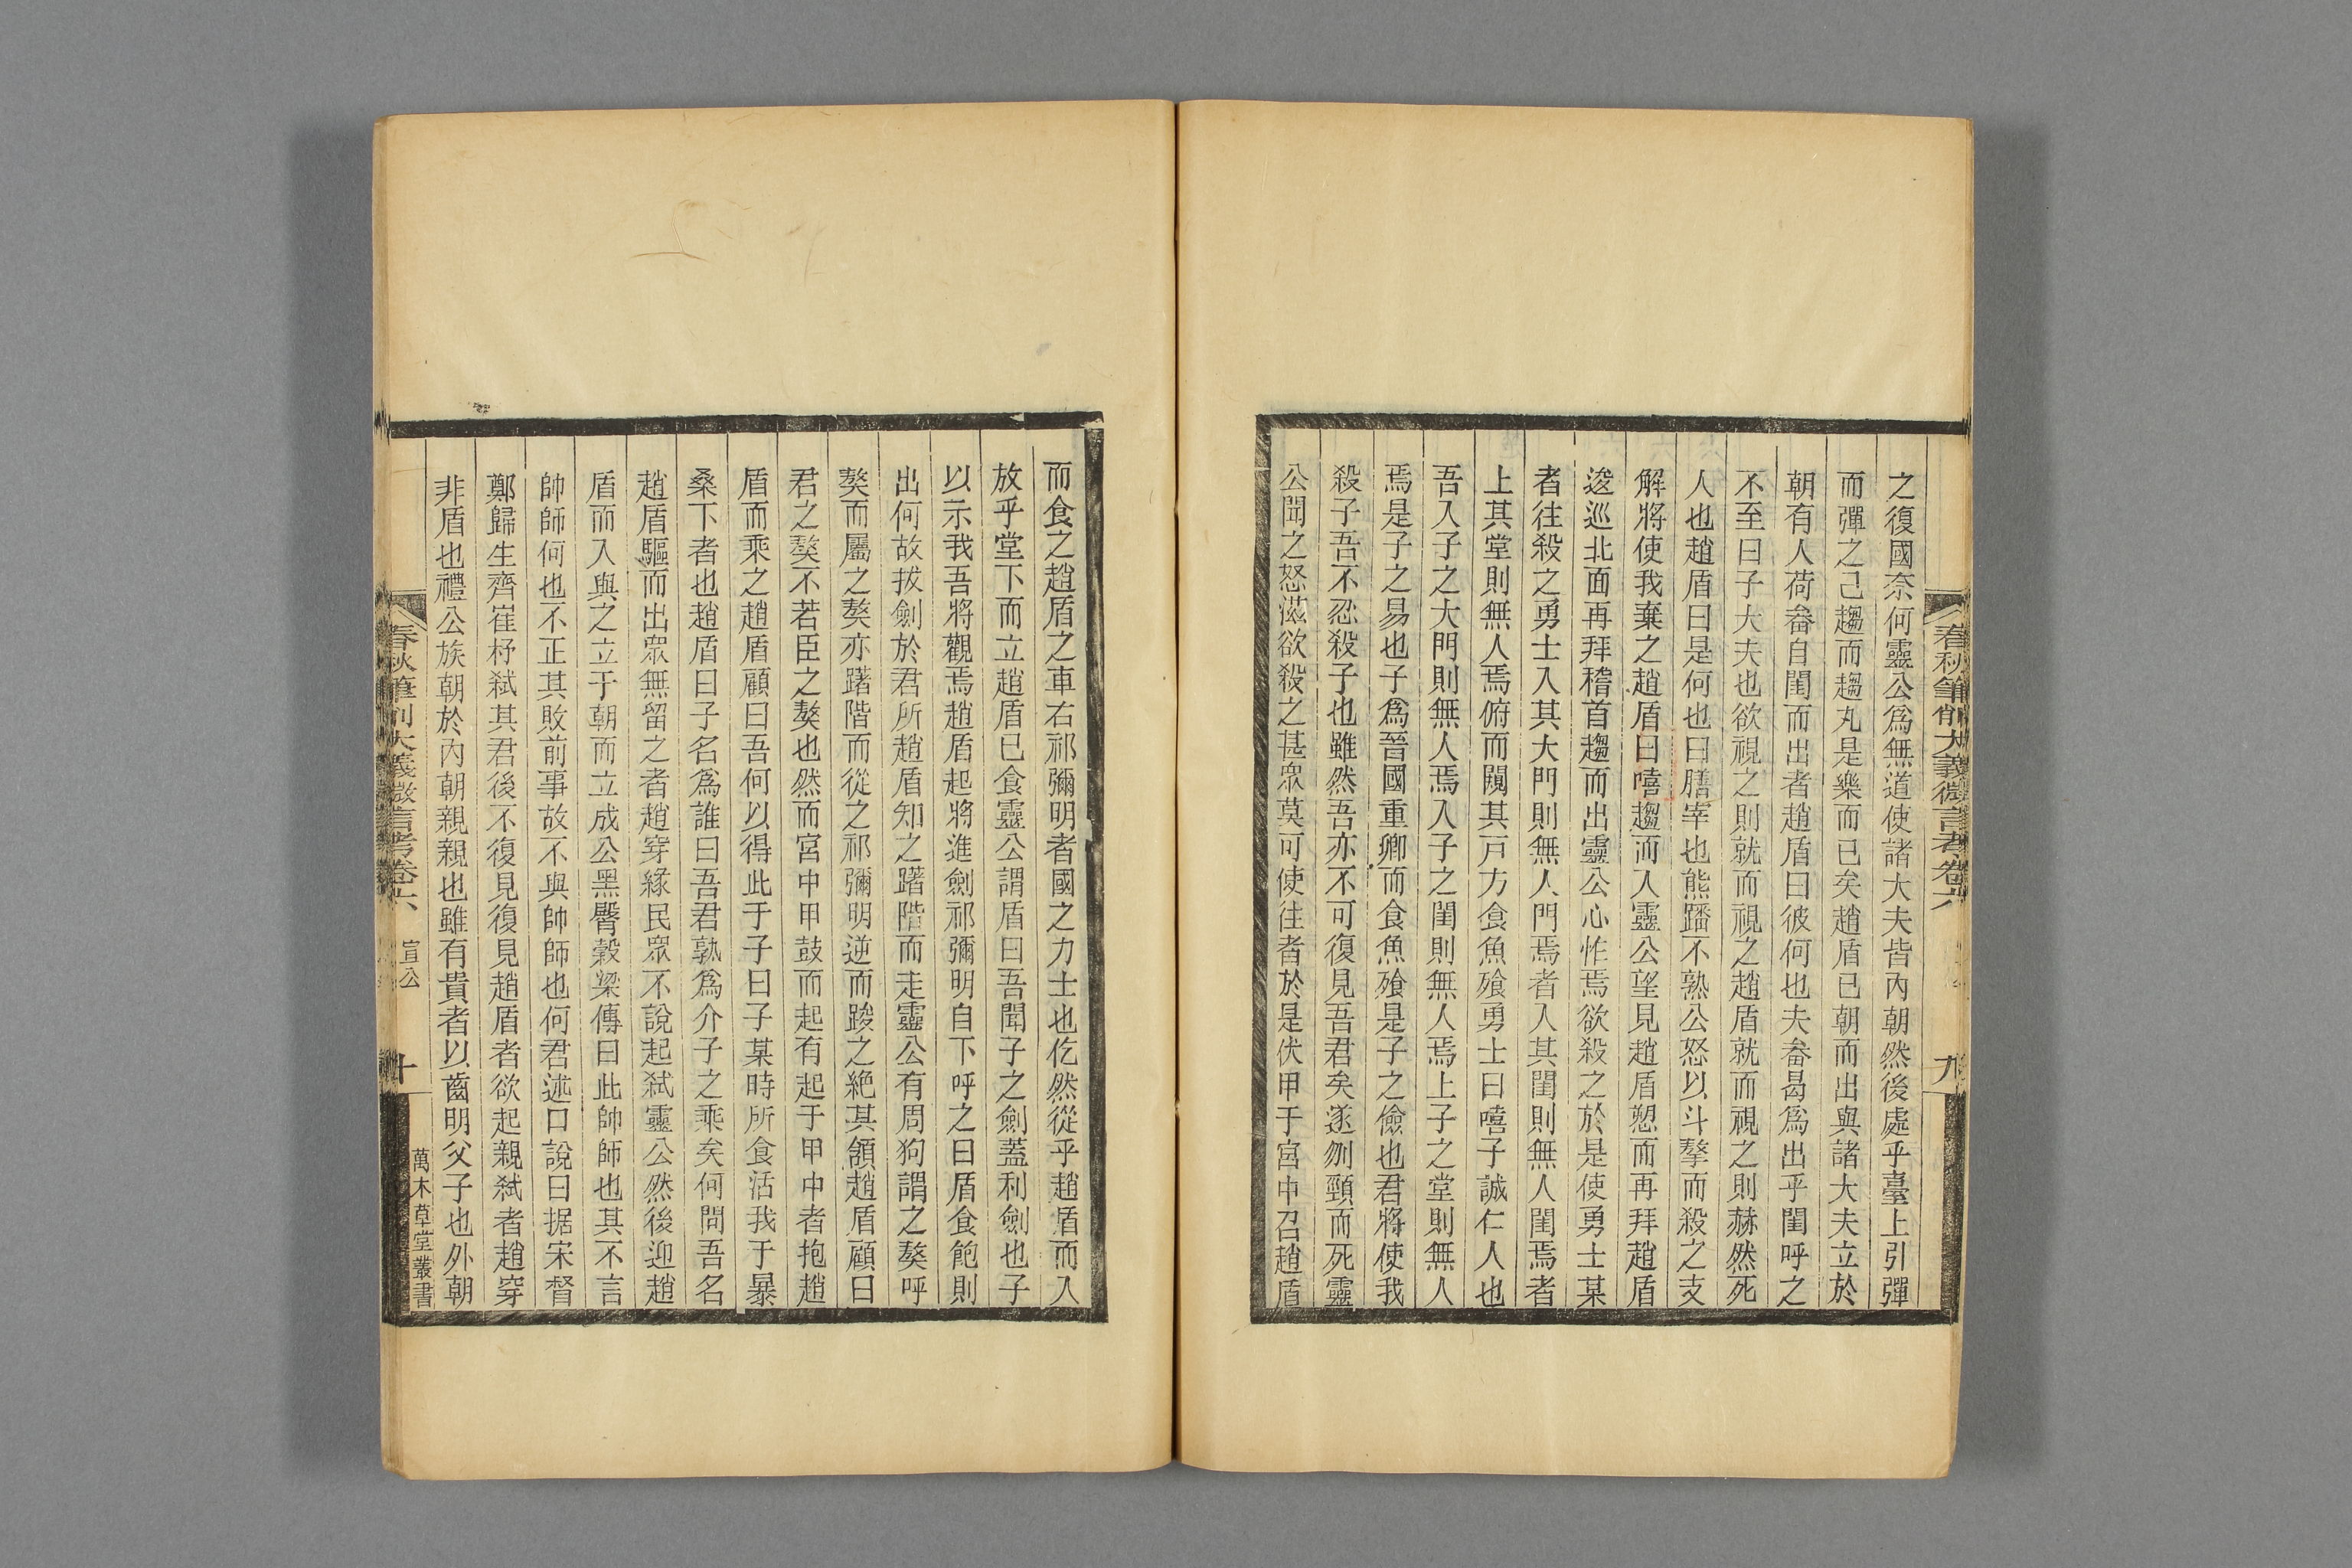 春秋筆削大義微言考卷六
九
之復國奈何靈公爲無道使諸大夫皆內朝然後處乎臺上引彈
而彈之己趨而趨丸是樂而已矣趙盾已朝而出與諸大夫立於
朝有人荷畚自閨而出者趙盾曰彼何也夫畚曷爲出乎閨呼之
不至曰子大夫也欲視之則就而視之趙盾就而視之則赫然死
人也趙盾曰是何也曰膳宰也熊蹯不熟公怒以斗摮而殺之支
解將使我棄之趙盾曰嘻趨而入靈公望見趙盾愬而再拜趙盾
逡巡北面再拜稽首趨而出靈公心怍焉欲殺之於是使勇士某
者往殺之勇士入其大門則無人門焉者入其閨則無人閨焉者
上其堂則無人焉俯而闚其戸方食魚飱勇士曰嘻子誠仁人也
吾入子之大門則無人焉入子之閨則無人焉上子之堂則無人
焉是子之易也子爲晉國重卿而食魚飱是子之儉也君將使我
殺子吾不忍殺子也雖然吾亦不可復見吾君矣遂刎頸而死靈
公聞之怒滋欲殺之甚眾莫可使往者於是伏甲于宮中召趙盾
而食之趙盾之車右祁彌明者國之力士也仡然從乎趙盾而入
放乎堂下而立趙盾已食靈公謂盾曰吾聞子之劍蓋利劍也子
以示我吾將觀焉趙盾起將進劍祁彌明自下呼之曰盾食飽則
出何故拔劍於君所趙盾知之躇階而走靈公有周狗謂之獒呼
獒而屬之獒亦躇階而從之祁彌明逆而踆之絕其頷趙盾顧曰
君之獒不若臣之獒也然而宮中甲鼓而起有起于甲中者抱趙
盾而乘之趙盾顧曰吾何以得此于子曰子某時所食活我于暴
桑下者也趙盾曰子名爲誰曰吾君孰爲介子之乘矣何問吾名
趙盾驅而出眾無留之者趙穿緣民眾不說起弒靈公然後迎趙
盾而入與之立于朝而立成公黑臀穀梁傳曰此帥師也其不言
帥師何也不正其敗前事故不與帥師也何君述口說曰据宋督
鄭歸生齊崔杼弒其君後不復見復見趙盾者欲起親弒者趙穿
非盾也禮公族朝於內朝親親也雖有貴者以齒明父子也外朝
春秋筆削大義微言考卷六
宣公
十
萬木草堂叢書